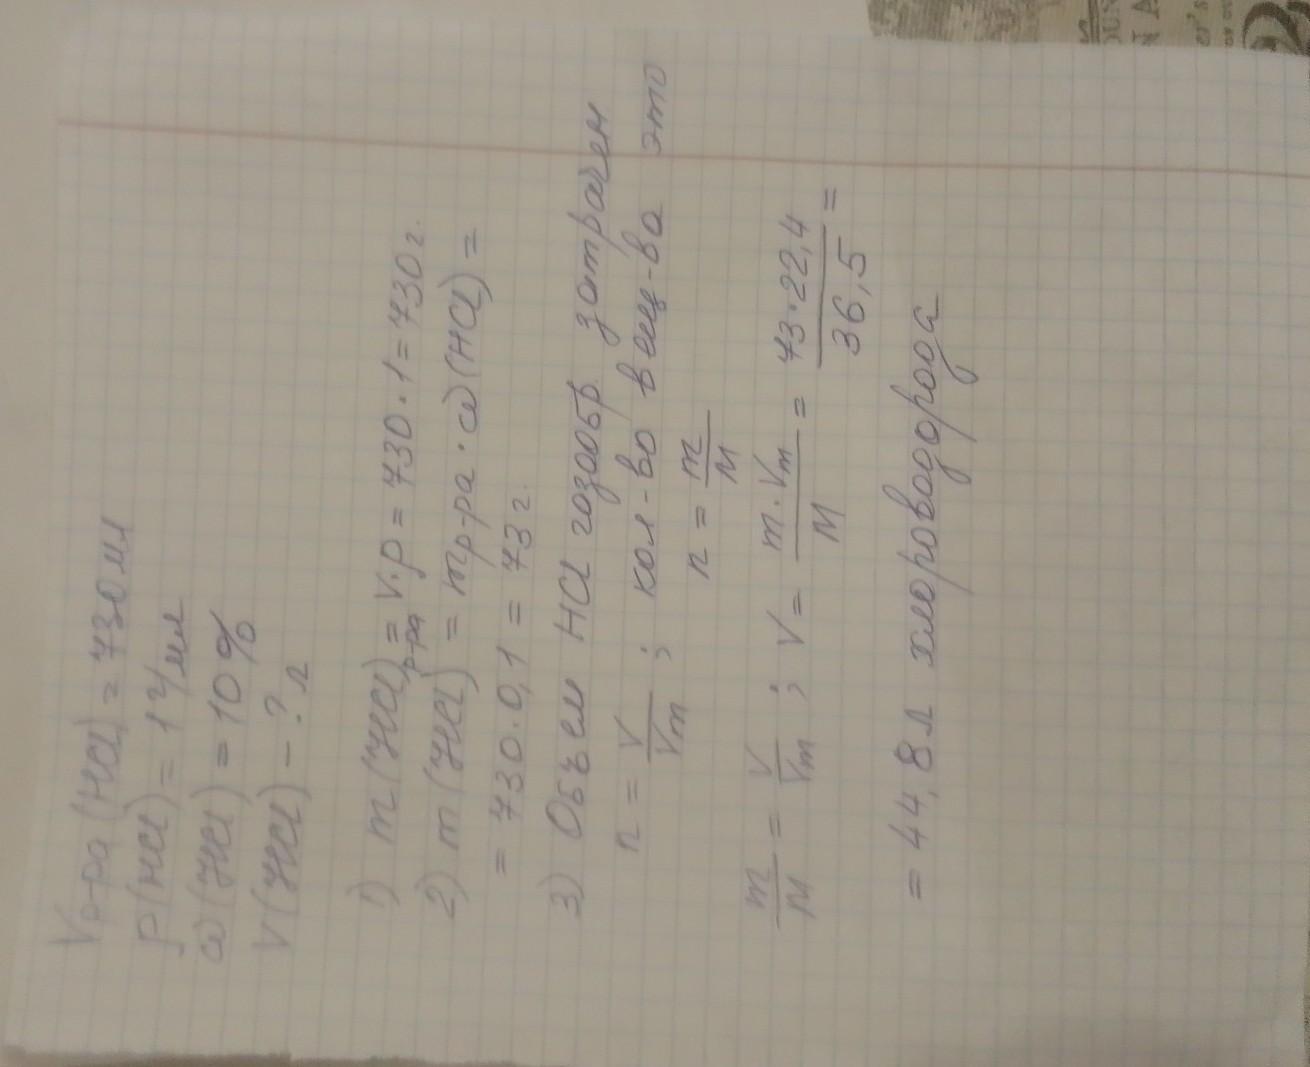 Vр-ра (HCl) = 730 мл
ρ (HCl) = 1 г/мл
ω (HCl) = 10%
V (HCl) - ? л
1) m (HCl)р-ра = V·ρ = 730·1 = 730 г.
2) m (HCl) = mр-ра · ω (HCl) =
= 730·0,1 = 73 г.
3) Объем HCl газообр. затрачен
n = V/Vm ; кол-во вещ-ва это
n = m/M
m/M = V/Vm ; V = m·Vm/M = 73·22,4/36,5 =
= 44,8 л хлороводорода